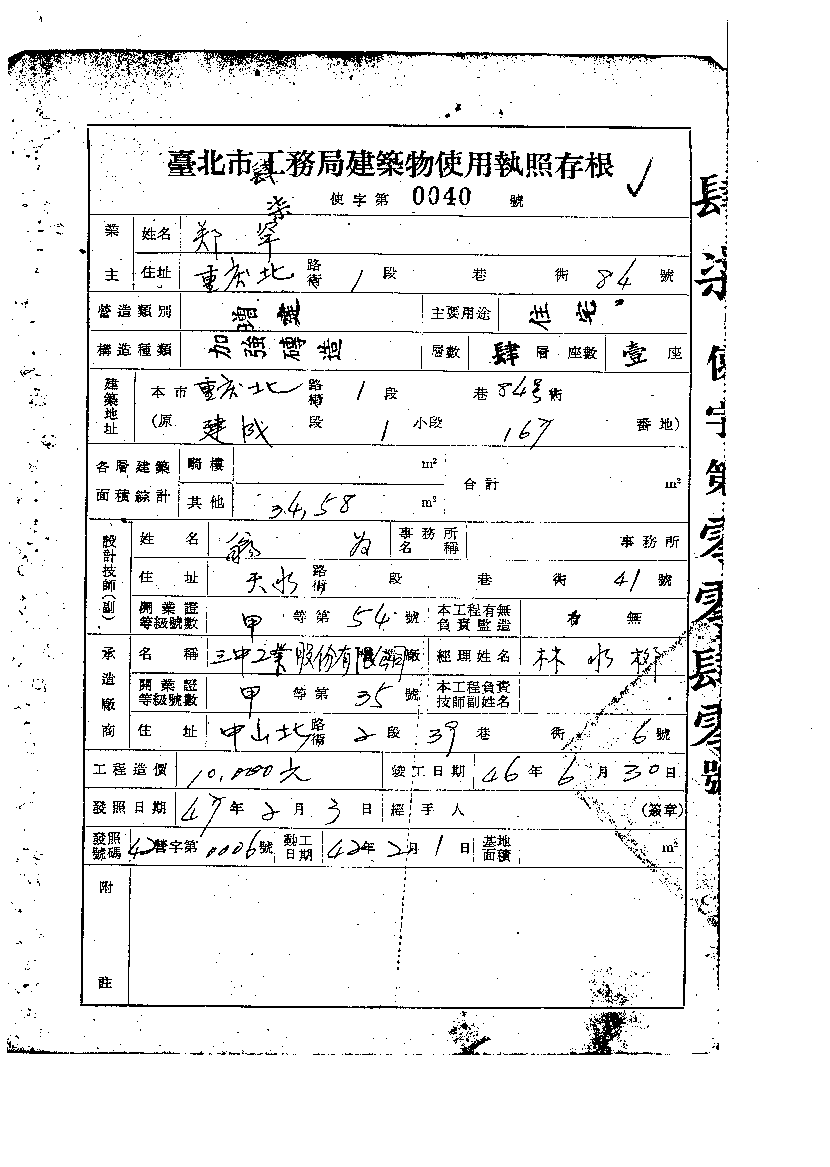 臺北市工務局建築物使用執照存根
肆柒
使字第 0040 號
業主 姓名 鄭
住址 重慶北 路街 1 段 巷 街 84 號
營造類別 增建 主要用途 住宅
構造種類 加強磚造 層數 肆 層 座數 壹 座
建築地址 本市 重慶北 路街 1 段 巷 84号 街
(原 建成 段 1 小段 167 番地)
各層建築面積綜計 騎樓 m² 合計 m²
其他 34.58 m²
設計技師(副) 姓名 事務所名稱 事務所
住址 天水 路街 段 巷 街 41 號
開業證等級號數 甲 等第 54 號 本工程有無負責監造 有 無
承造廠商 名稱 三中工業股份有限公司 廠 經理姓名 林水
開業證等級號數 甲 等第 35 號 本工程負責技師副姓名
住址 中山北 路街 2 段 39 巷 街 6 號
工程造價 10,000元 竣工日期 46 年 6 月 30 日
發照日期 47 年 2 月 3 日 經手人 (簽章)
發照號碼 42營字第 0006 號 動工日期 42 年 2 月 1 日 基地面積 m²
附註
肆柒使字第零零肆零號